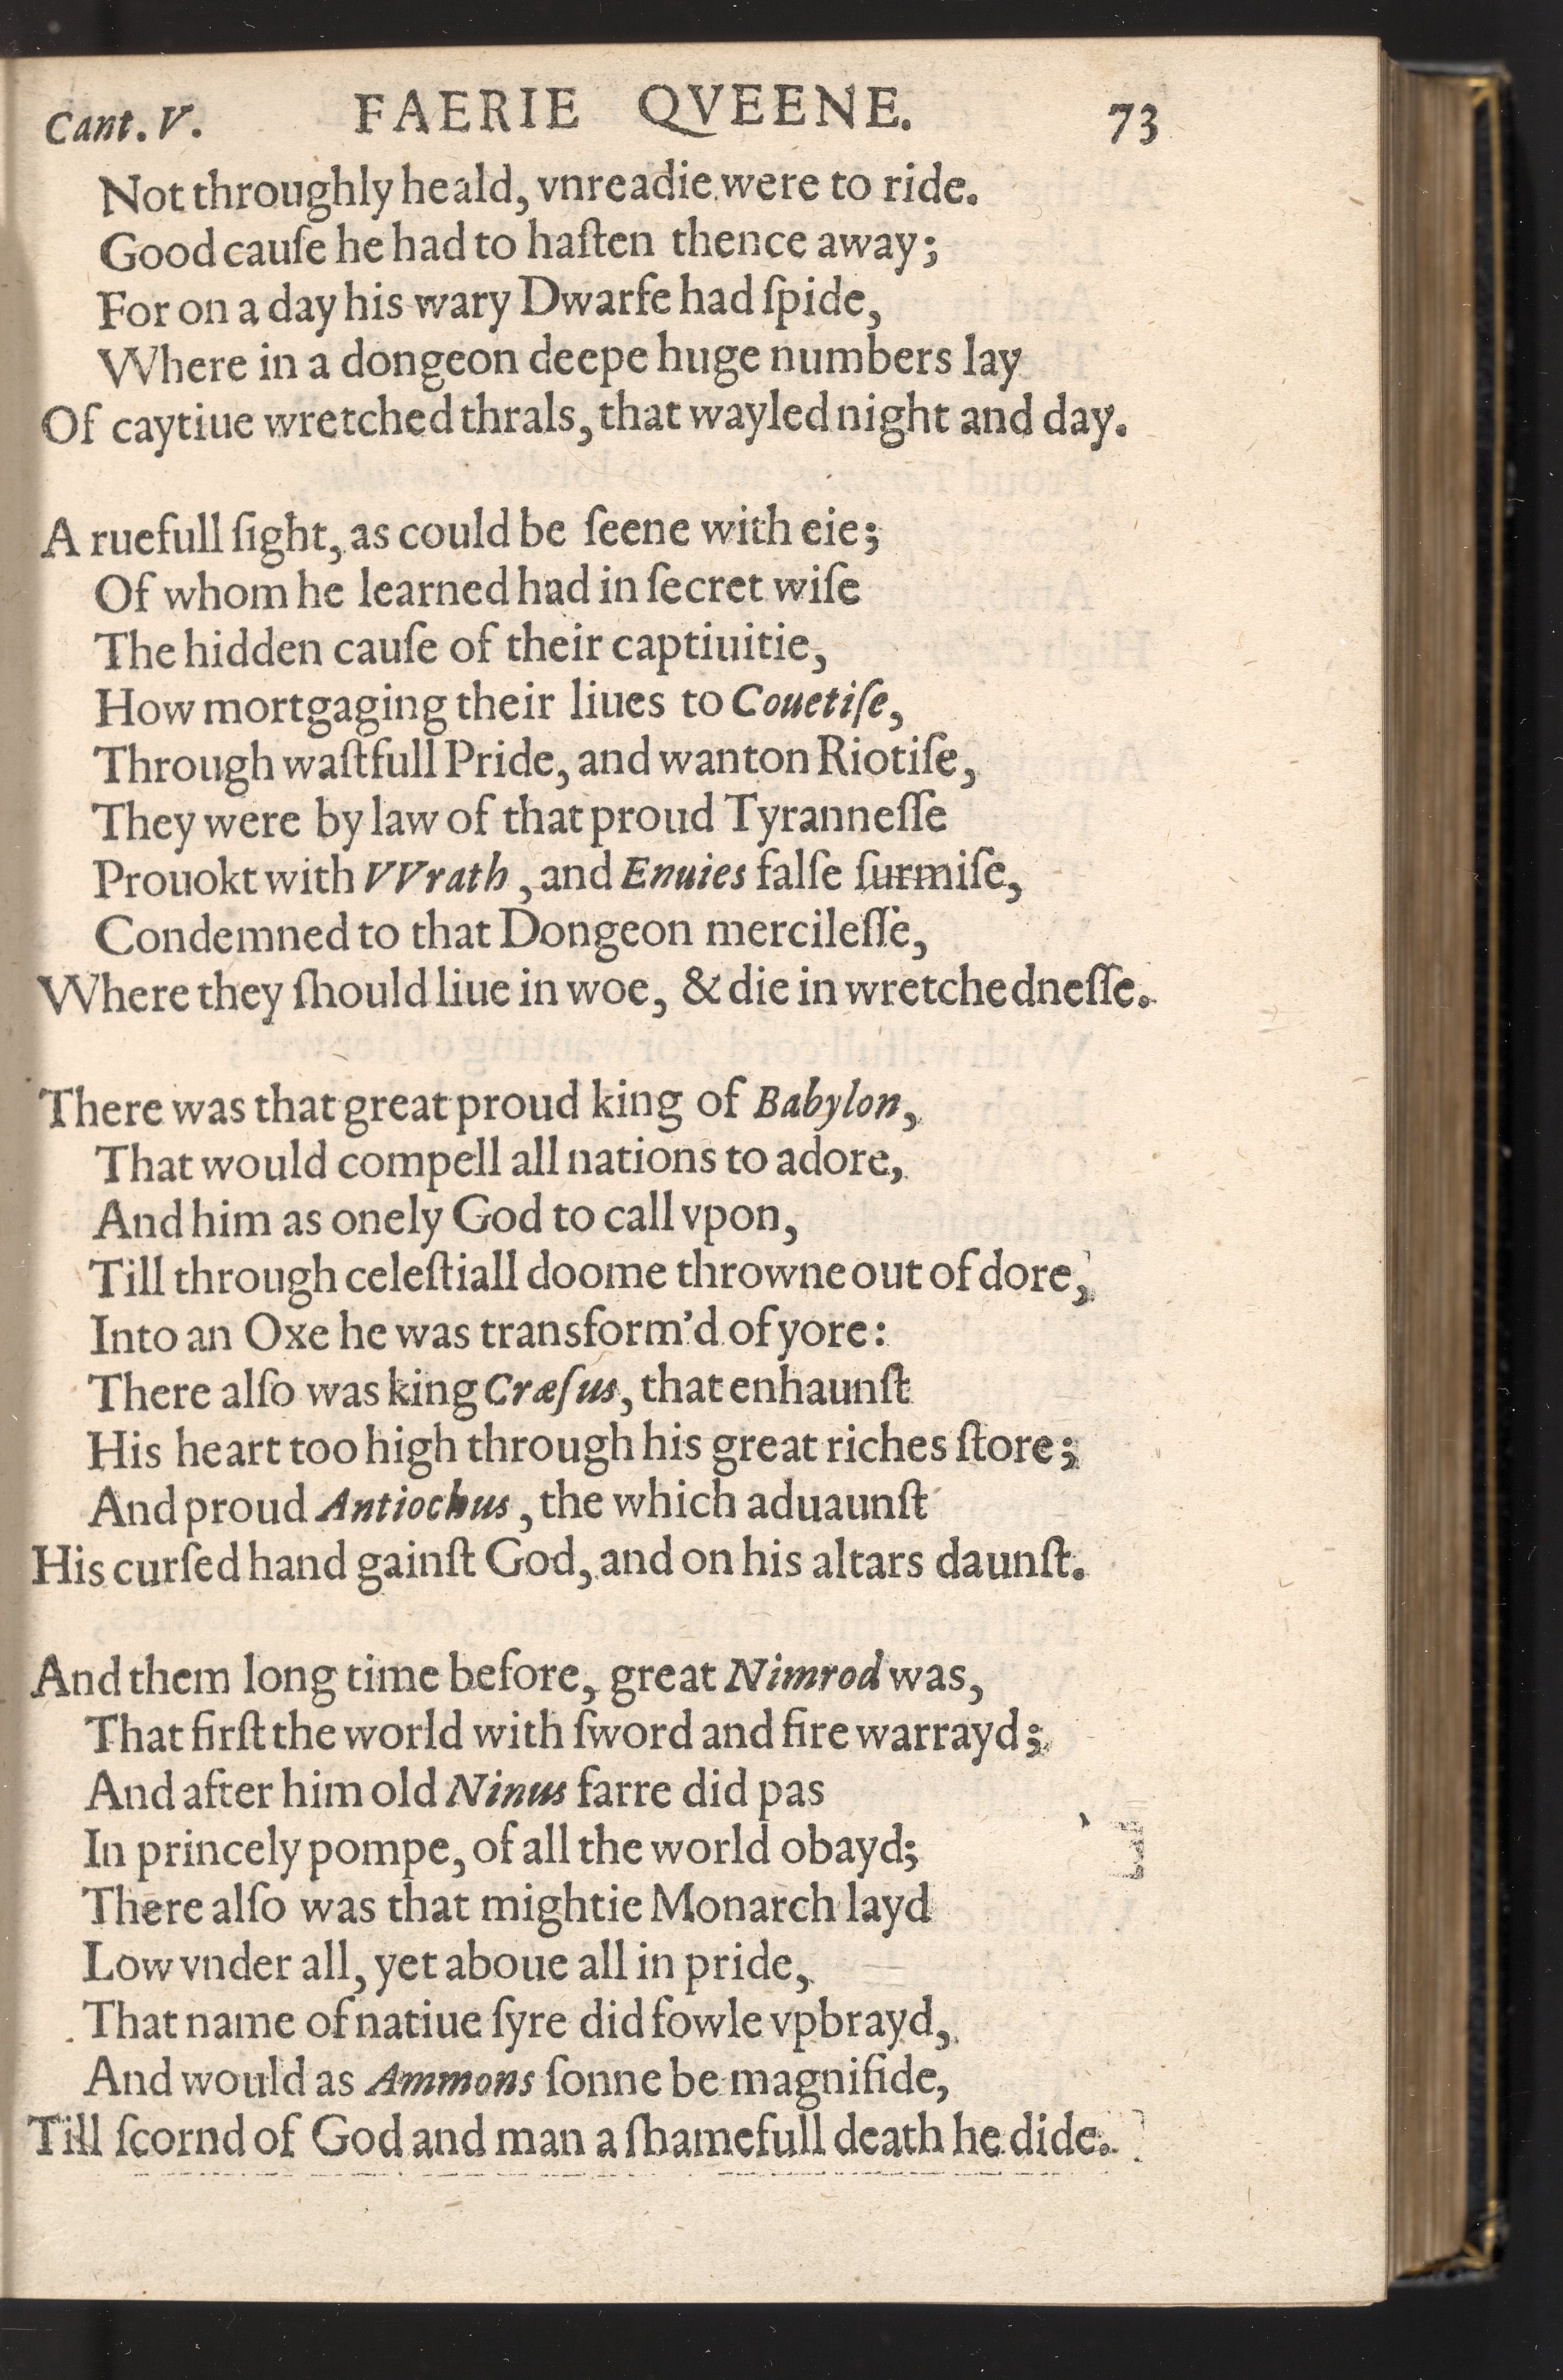 Cant. V. FAERIE QVEENE. 73
Not throughly heald, vnreadie were to ride.
Good cauſe he had to haſten thence away;
For on a day his wary Dwarfe had ſpide,
Where in a dongeon deepe huge numbers lay
Of caytiue wretched thrals, that wayled night and day.
A ruefull ſight, as could be ſeene with eie;
Of whom he learned had in ſecret wiſe
The hidden cauſe of their captiuitie,
How mortgaging their liues to Couetiſe,
Through waſtfull Pride, and wanton Riotiſe,
They were by law of that proud Tyranneſſe
Prouokt with VVrath, and Enuies falſe ſurmiſe,
Condemned to that Dongeon mercileſſe,
Where they ſhould liue in woe, & die in wretchedneſſe.
There was that great proud king of Babylon,
That would compell all nations to adore,
And him as onely God to call vpon,
Till through celeſtiall doome throwne out of dore,
Into an Oxe he was transform'd of yore:
There alſo was king Cræſus, that enhaunſt
His heart too high through his great riches ſtore;
And proud Antiochus, the which aduaunſt
His curſed hand gainſt God, and on his altars daunſt.
And them long time before, great Nimrod was,
That firſt the world with ſword and fire warrayd;
And after him old Ninus farre did pas
In princely pompe, of all the world obayd;
There alſo was that mightie Monarch layd
Low vnder all, yet aboue all in pride,
That name of natiue ſyre did fowle vpbrayd,
And would as Ammons ſonne be magnifide,
Till ſcornd of God and man a ſhamefull death he dide.